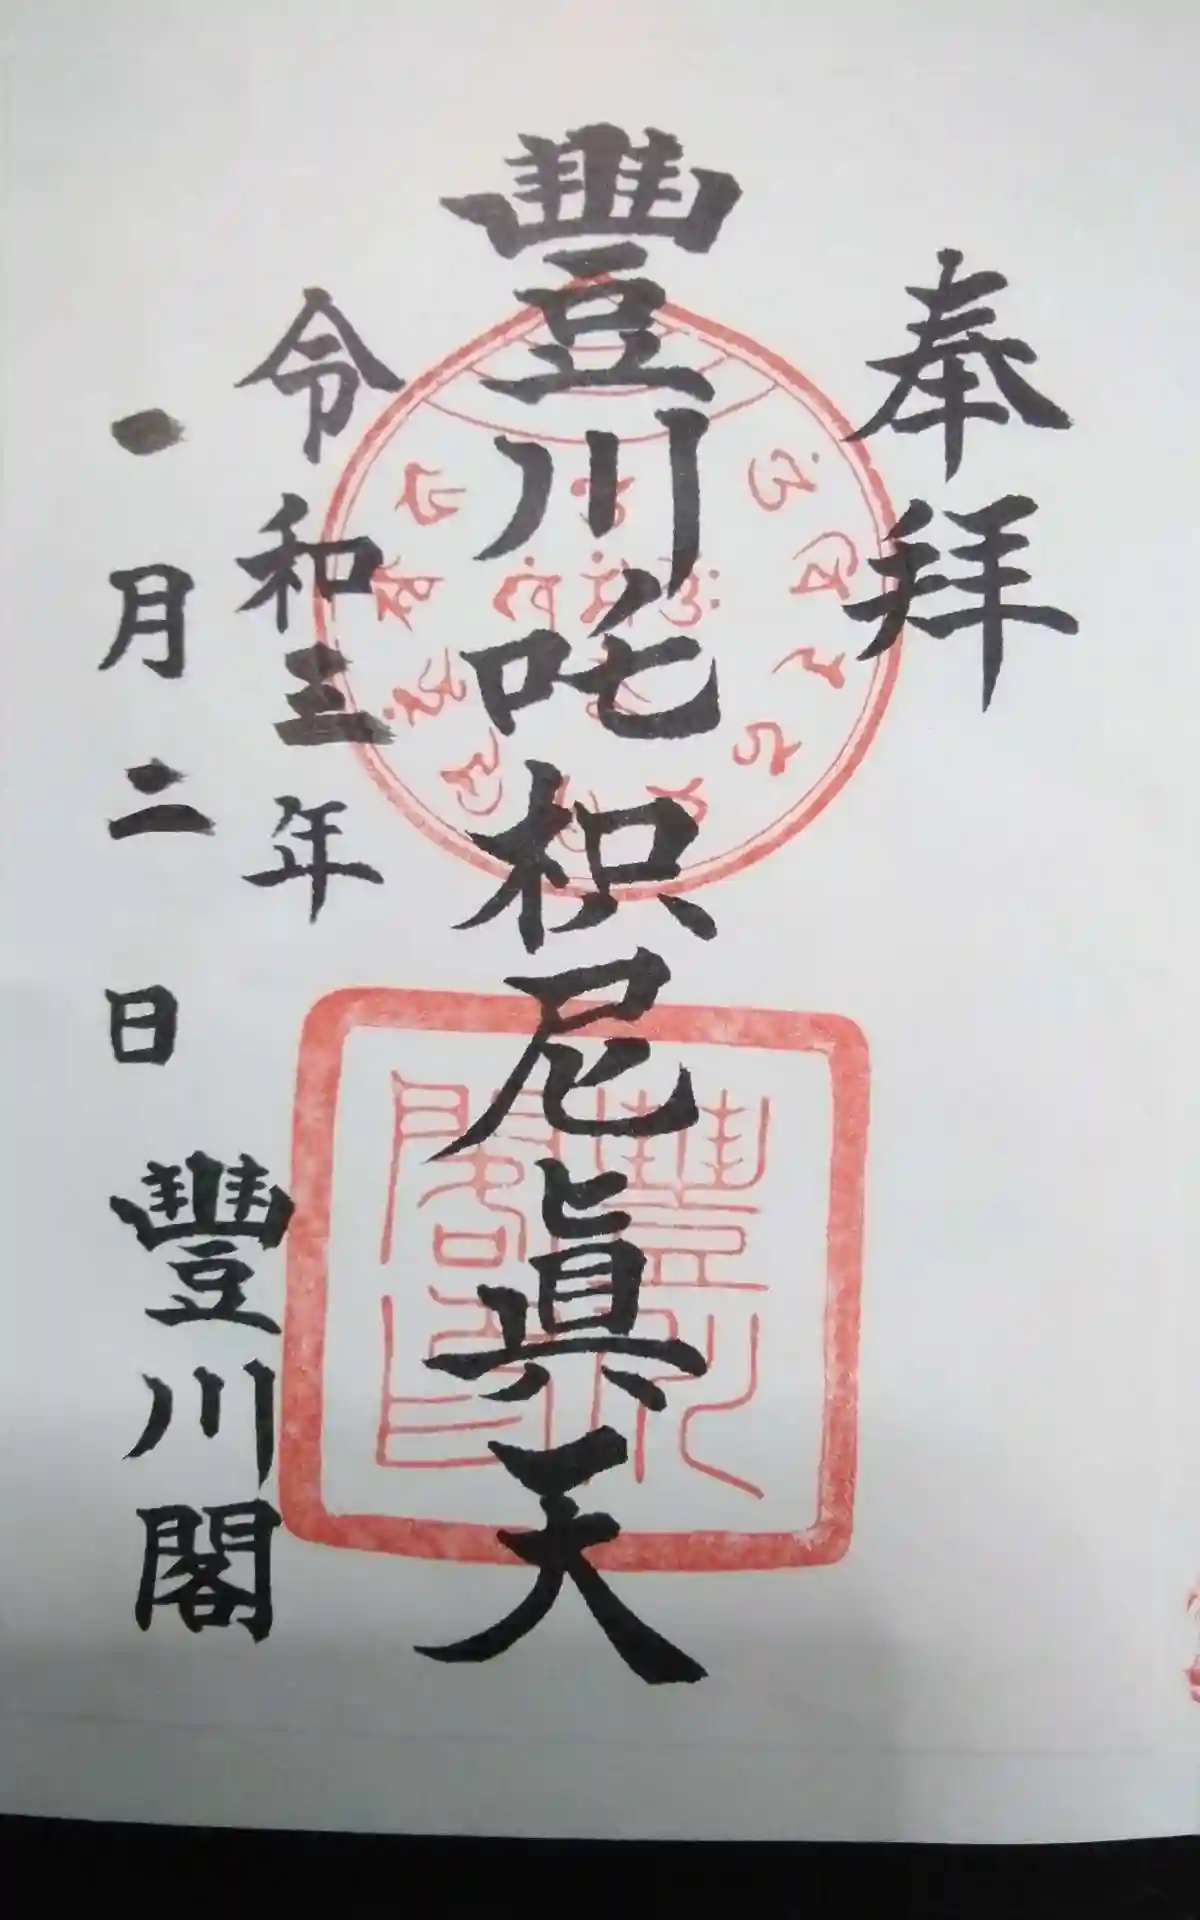 奉拜
豐川吒枳尼眞天
令和三年
一月二日
豐川閣
豐川
閣印